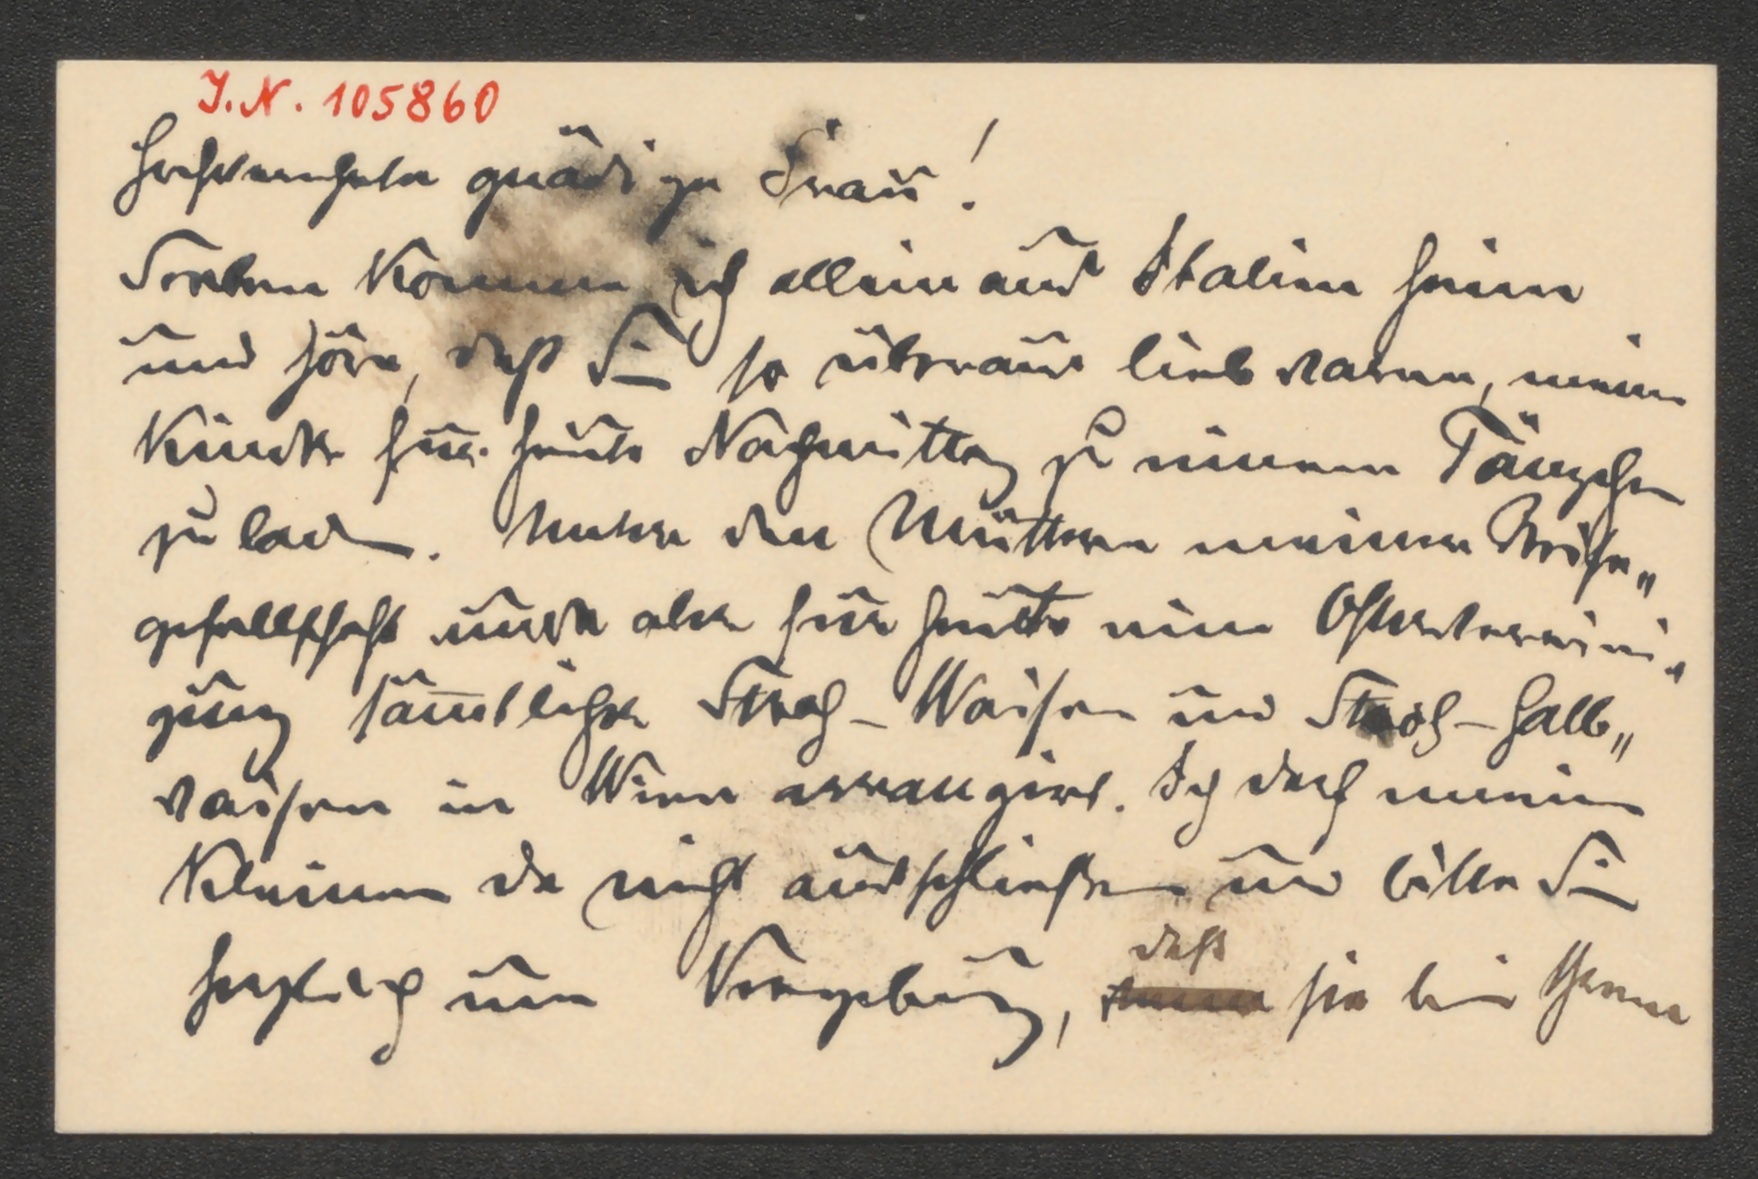 J.N. 105860
Hochverehrte gnädige Frau!
Soeben komme ich allein aus Italien heim
und höre, daß Sie so überaus lieb waren, meine
Kinder für heute Nachmittag zu einem Tänzchen
zu laden. Unter den Müttern meiner Reise„
gesellschaft wurde aber für heute eine Ostervereini„
gung sämtlicher Stroh-Waisen und Stroh-Halb„
waisen in Wien arrangirt. Ich darf meine
Kleinen da nicht ausschließen und bitte Sie
herzlich um Vergebung, daß sie bei Ihnen